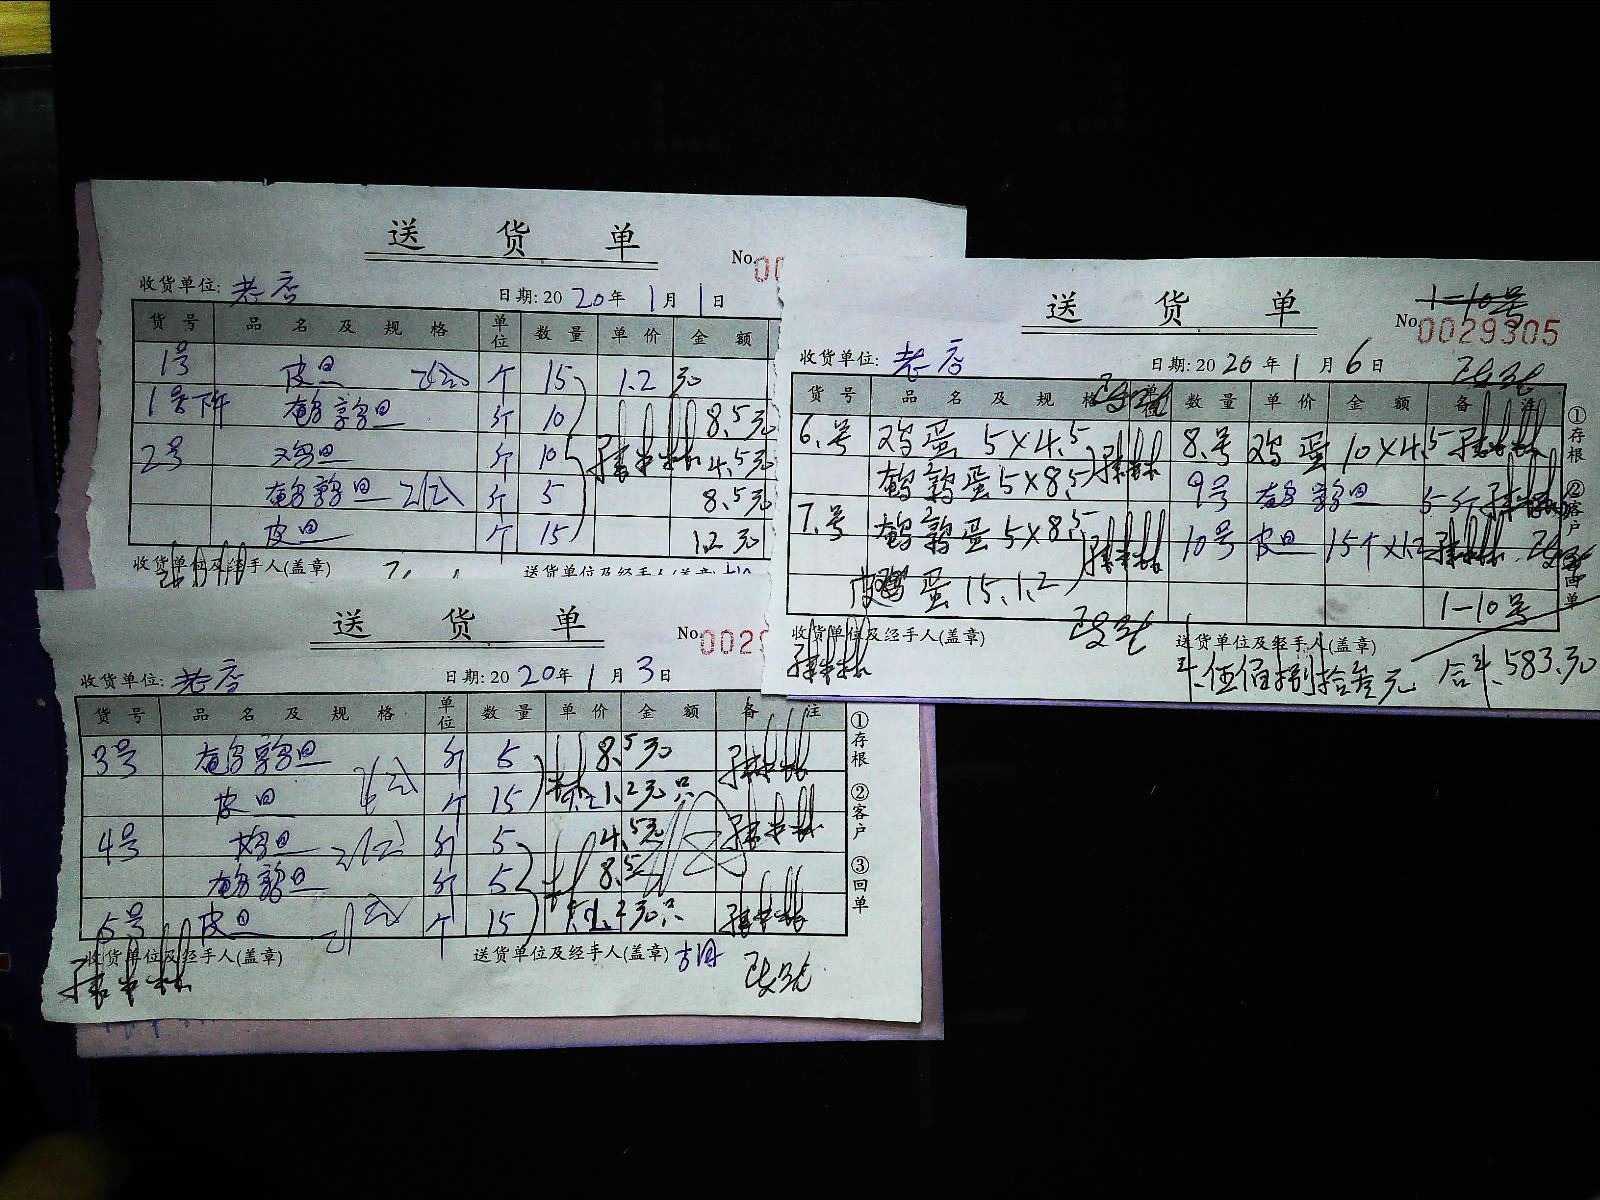 送 货 单
No. 00
收货单位: 老店 日期: 2020年 1月 1日
货号 品名及规格 单位 数量 单价 金额
1号 皮旦 个 15 1.2元
1号下午 鹌享旦 斤 10 8.5元
2号 鸡旦 斤 10 4.5元
鹌鹑旦 斤 5 8.5元
皮旦 个 15 1.2元
收货单位及经手人(盖章) 送货单位及经手人(盖章)
送 货 单
1-10号
No 0029305
收货单位: 老店 日期: 2020年 1月 6日
货号 品名及规格 单位 数量 单价 金额 备注
6.号 鸡蛋 5×4.5 8.号 鸡蛋 10×4.5
鹌鹑蛋 5×8.5 9号 鹌鹑旦 5斤
7.号 鹌鹑蛋 5×8.5 10号 皮旦 15个×1.2
皮蛋 15.1.2
1-10号
收货单位及经手人(盖章) 送货单位及经手人(盖章)
伍佰捌拾叁元 合计.583.元
①存根 ②客户 ③回单
送 货 单
No. 0029
收货单位: 老店 日期: 2020年 1月 3日
货号 品名及规格 单位 数量 单价 金额 备注
3号 鹌享旦 斤 5 8.5元
皮旦 个 15 1.2元只
4号 鸡旦 斤 5 4.5元
鹌鹑旦 斤 5 8.5
5号 皮旦 个 15 1.2元只
收货单位及经手人(盖章) 送货单位及经手人(盖章)
①存根 ②客户 ③回单